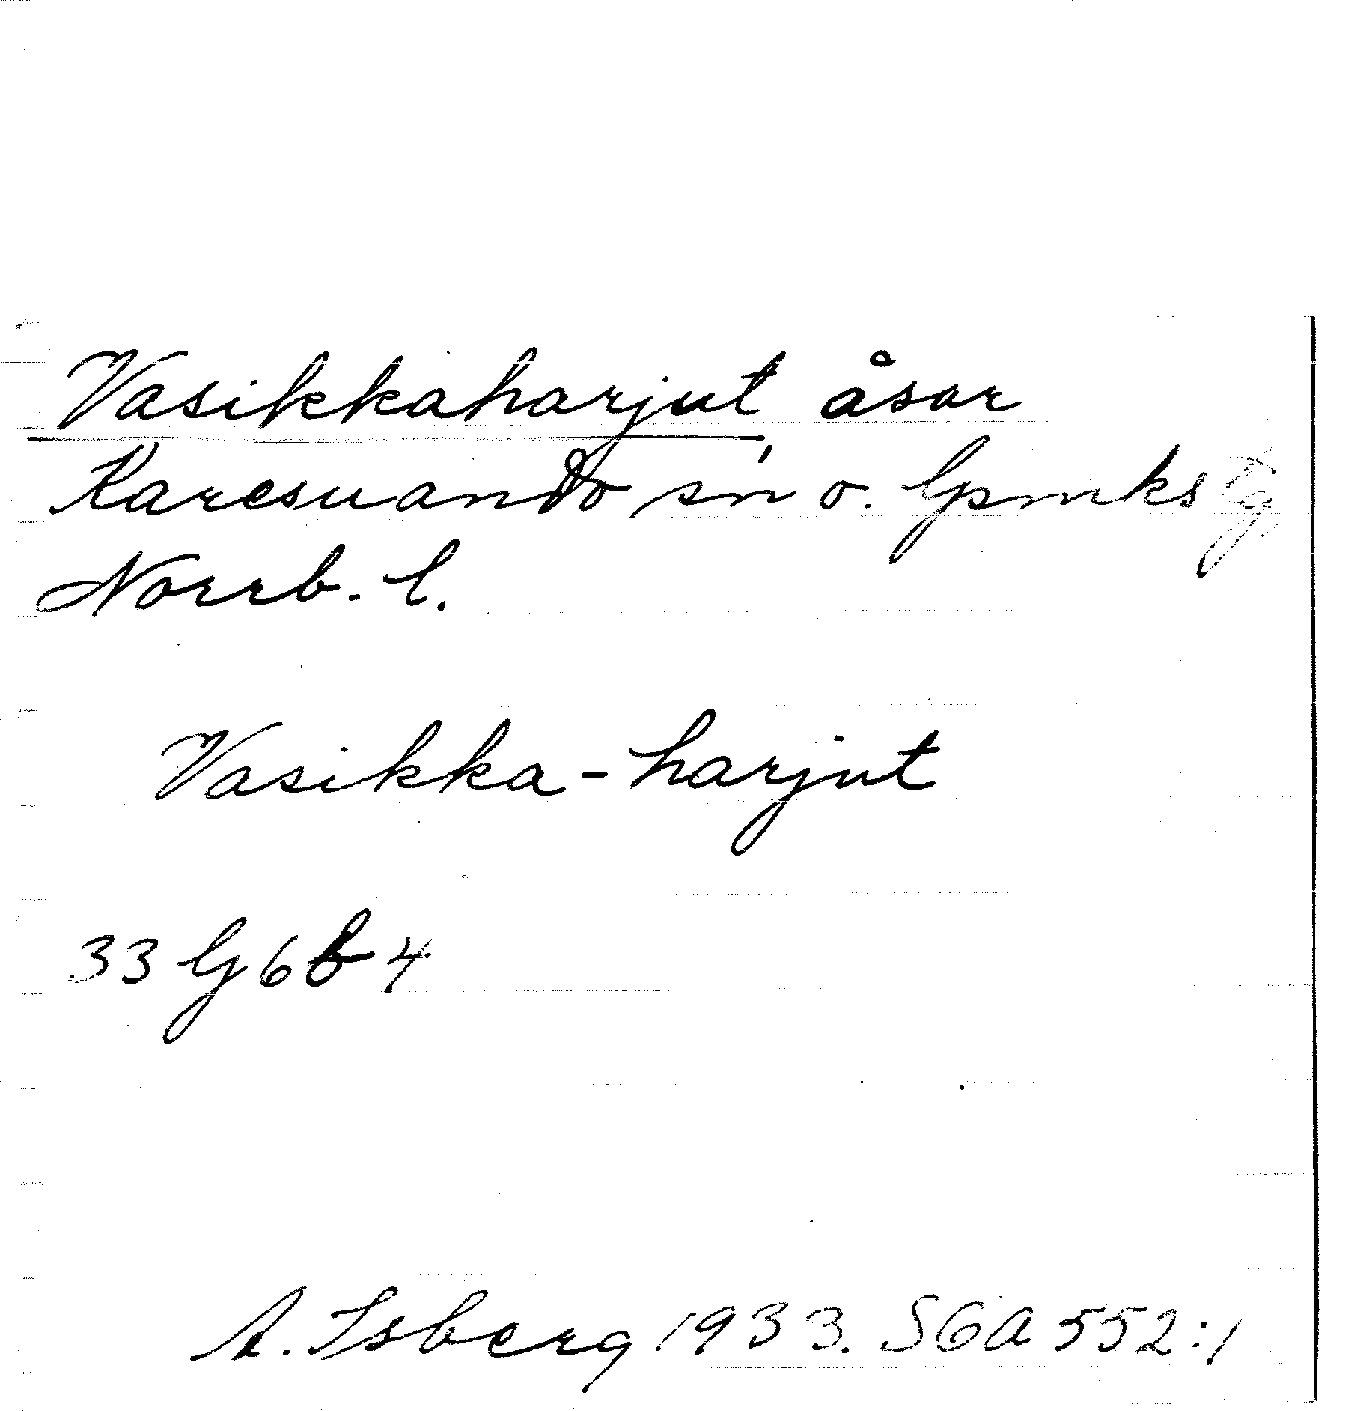 Vasikkaharjut åsar
Karesuando sn o. lpmksfg
Norrb. l.
Vasikka-harjut
33 G 6 b 4
A. Isberg 1933. SGA 552:1